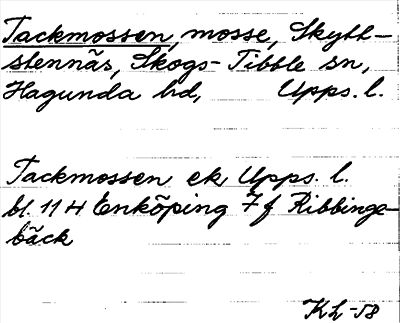 Tackmossen, mosse, Skytt-
stennäs, Skogs-Tibble sn,
Hagunda hd, Upps. l.
Tackmossen ek Upps. l.
bl. 11 H Enköping 7 f Ribbinge-
bäck
Kh -58